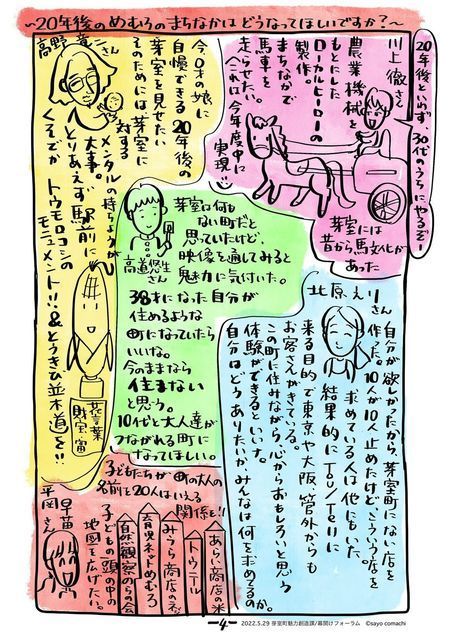 ～20年後のめむろのまちなかは どうなってほしいですか？～
川上 徹さん
20年後といわず、30代のうちにやるぞー！
農業機械を
もとにした
ローカルヒーローの
製作。
まちなかで
馬車を
走らせたい。
(これは今年度中に
実現!!)
芽室には
昔から馬文化が
あった
高野 竜二さん
今0才の娘に
自慢できる20年後の
芽室を見せたい
そのためには芽室に
対する
メンタルの持ちようが
大事。
とりあえず駅前に
くそでか トウモロコシの
モニュメント!!&とうきび並木道を!!
花言葉
財宝 富
高道 悠生さん
芽室は何も
ない町だと
思っていたけど、
映像を通してみると
魅力に気付いた。
38才になった自分が
住めるような
町になっていたら
いいな。
今のままなら
住まない
と思う。
10代と大人達が
つながれる町に
なってほしい。
北原 えりさん
自分が欲しかたから、芽室町にない店を
作った。10人が10人止めたけど、こういう店を
求めている人は他にもいた
結果的にTOYTOYに
来る目的で東京や大阪、管外からも
お客さんがきている。
この町に住みながら心からおもしろいと思う
体験ができるといいな。
自分はどうありたいか、みんなは何を求めてるのか。
平岡 早苗さん
子どもたちが 町の大人の
名前を20人はいえる
関係を!!
あらい商店の米
トウニテール
みうら商店の
育児ネットめむろ
自然観察のらの会
子どもの頭の中の
地図を広げたい。
-4-
2022.5.29 芽室町魅力創造課/幕開けフォーラム ©sayo comachi